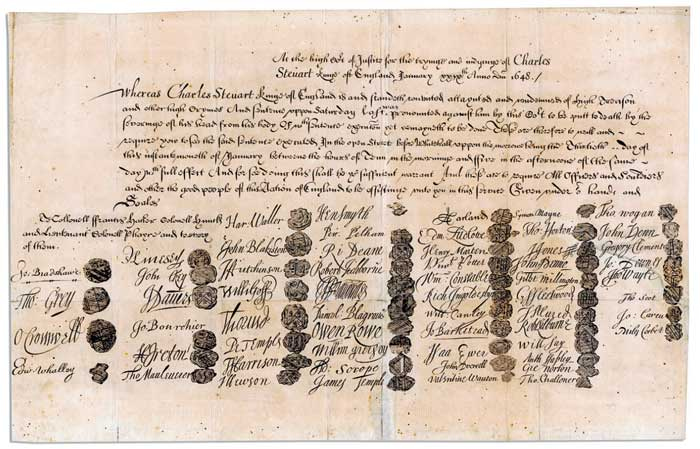 At the high Cot of Justice for the tryinge and iudginge of Charles
Steuart kinge of England January xxixth Anno Dni 1648./
Whereas Charles Steuart kinge of England is and standeth convicted attaynted and condemned of High Treason
and other high Crymes And sentence uppon Saturday last was pronounced against him by this Cot to be putt to death by the
severinge of his head from his body Of wch sentence execucon yet remayneth to be done These are therefore to will and
require you to see the said sentence executed In the open Streete before Whitehall uppon the morrowe being the Thirtieth day of
this instante moneth of January betweene the houres of Tenn in the morninge and Five in the afternoone of the same
day wth full effect And for soe doing this shall be yor sufficient warrant And these are to require All Officers and Souldiers
and other the good people of this Nation of England to be assistinge unto you in this service Given under or hands and
Seales
To Collonell Ffrancis Hacker Colonell Huncks
and Lieutenant Colonell Phayre and to every
of them.
Jo Bradshawe
Tho Grey
O Cromwell
Edw Whalley
John
J Danvers
Jo Bourchier
H Ireton
Tho Mauleverer
Har Waller
John Blakiston
J Hutchinson
Willi Goff
Pe Temple
T Harrison
J Hewson
Hen Smyth
Per Pelham
Ri Deane
Robert Tichborne
Daniel Blagrave
Owen Rowe
Adr Scrope
James Temple
Edm Ludlowe
Henry Marten
Wm Constable
Rich Ingoldesby
Will Cawley
Jo Barkestead
Isaa Ewer
John Dixwell
Valentine Wauton
Symon Mayne
Tho Horton
J Jones
John
Gilbt Millington
G Fleetwood
J Alured
Robt Lilburne
Will Say
Anth Stapley
Gre Norton
Tho Challoner
Tho Wogan
John Venn
Gregory Clement
Jo Downes
Tho Wayte
Tho Scot
Jo Carew
Miles Corbet